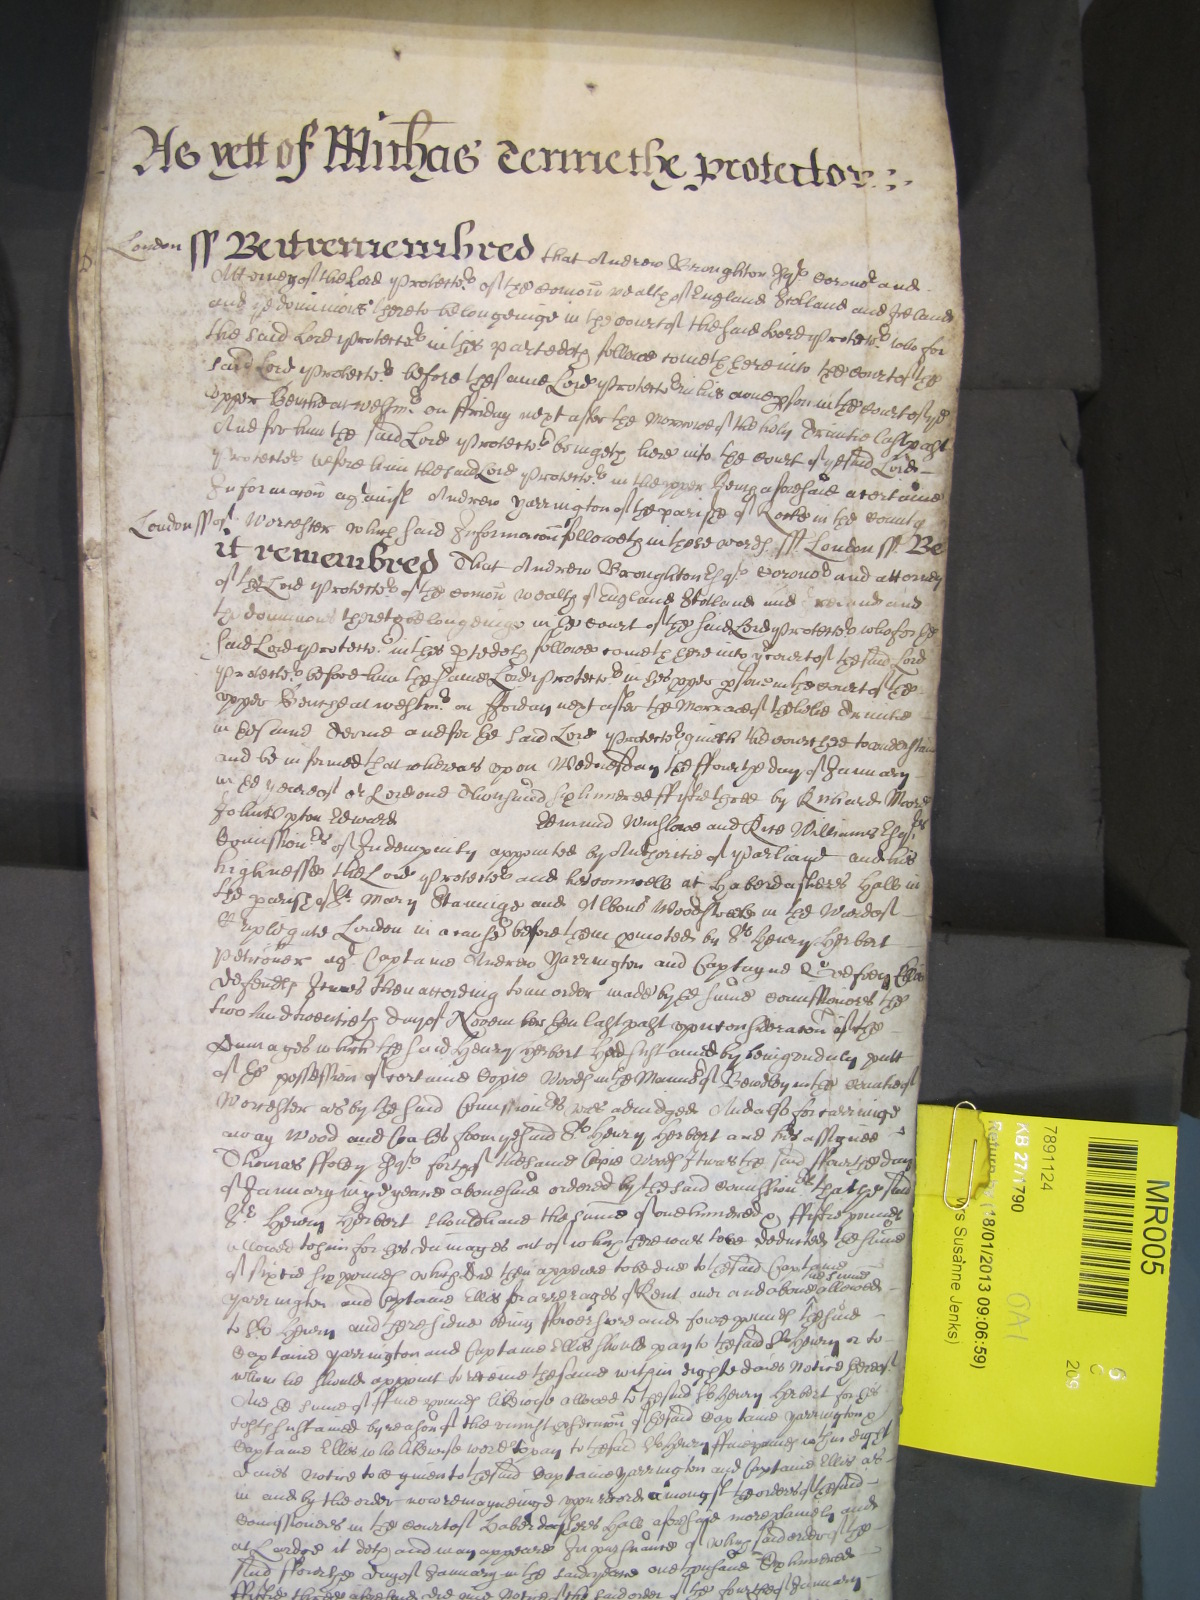 As yett of Michas Terme the protector
London ss Beit remembred that Andrew Broughton Esqr Coronr and
Attorney of the Lord Protectr of the Comon wealth of England Scotland and Ireland
and ye dominions thereto belonginge in the court of the said Lord Protectr who for
the said Lord Protectr in this parte doth followe cometh here into the court of the
said Lord Protectr before the same Lord Protectr in his owne pson in the court of ye
upper Benche at Westmr on ffriday next after the Morrowe of the holy Trinitie last past
And for him the said Lord Protectr bringeth here into the court of ye said Lord
Protectr before him the said Lord Protectr in the upper Bench aforesaid a certaine
Informacon against Andrew Yarrington of the parishe of Rocke in the County
London ss of Worcester which said Informacon followeth in these words ss London ss Be
it remembred That Andrew Broughton Esqr Coronr and attorney
of the Lord Protectr of the Comon wealth of England Scotland and Ireland and
the dominions thereto belonginge in the court of the said Lord Protectr who for the
said Lord Protectr in this pte doth followe cometh here into ye court of the said Lord
Protectr before him the same Lord Protectr in his pper psone in the court of the
upper Benche at Westmr on Friday next after the Morrowe of the holie Trinitie
in the same Terme and for the said Lord Protectr giveth the court here to understand
and be informed that whereas upon Wednesday the ffourthe day of January
in the yeare of or Lord one Thousand six hundred ffiftie three by Richard Moore
John Upton Edward Edmund Winslowe and Rice Williams Esqrs
Comissionrs of Indempnity appointed by Authoritie of Parliamt and his
highnesse the Lord Protectr and his councell at Haberdashers Hall in
the parish of St Mary Staninge and Albons Woodstreete in the Ward of
Criplegate London in a cause before them pmoted by Sr Henry Herbert
Petitioner agt Captaine Andrew Yarrington and Captayne Godfrey Ellis
defendts It was then according to an order made by the same Comissioners the
two and twentieth day of November then last past upon consideracon of the
Damages which the said Henry Herbert had sustained by being unduly putt
of the possession of certaine Copie Woods in the Mannor of Bewdley in the countie of
Worcester as by the said Comissionrs was adiudged And also for carringe
away Wood and Coales from ye said Sr Henry Herbert and his assignee
Thomas ffoley Esqr forth of the same Copie Woods It was the said ffourthe day
of January in ye yeare abovesaid ordered by the said Comissionrs that the said
Sr Henry Herbert should have the sume of one hundred & ffiftie pounds
allowed to him for his damages out of which there was to be deducted the sume
of sixtie six pounds which did then appeare to be due to the said Captaine
Yarrington and Captaine Ellis for arrerages of Rent over and above the sume allowed
to Sr Henry and the residue being ffourscore and fowre pounds the said
Captaine Yarrington and Captaine Ellis should pay to the said Sr Henry or to
whom he should appoint to receive the same within eight daies notice hereof
And the sume of ffive pounds likewise allowed to the said Sr Henry Herbert for his
costs sustained by reason of the of the said Captaine Yarrington &
Captaine Ellis who likewise were to pay to the said Sr Henry ffive pounds within eight
daies notice to be given to the said Captaine Yarrington and Captaine Ellis as
in and by the order now remayneinge upon record amongst the orders of the said
Comissioners in the court of Haberdashers Hall aforesaid more plainely and
at Large it doth and may appeare In pursuance of which said order of the
said ffourthe day of January in the said yeare one thousand six hundred
ffiftie three notice of the said order of the fourth of January
MR005
7891124
KB 27/1790
Return by (18/01/2013 09:06:59)
Mrs Susanne Jenks)
OA1
6
C
209